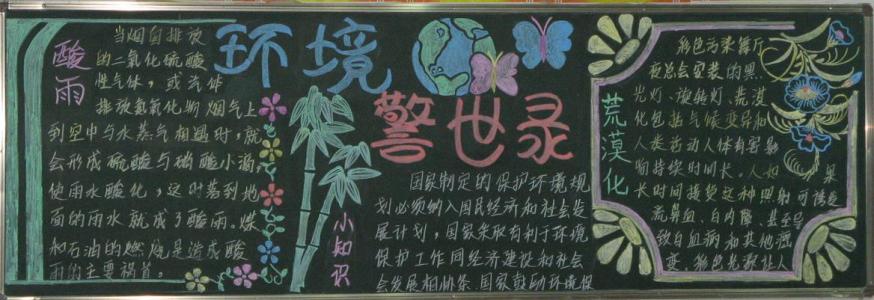 环境
警世录
酸雨
当烟囱排放
的二氧化硫酸
性气体，或汽体
排放氮氧化物烟气上
到空中与水蒸气相遇时，就
会形成硫酸与硝酸小滴，
使雨水酸化，这时落到地
面的雨水就成了酸雨。煤
和石油的燃烧是造成酸
雨的主要祸首。
小知识
国家制定的保护环境规
划必须纳入国民经济和社会发
展计划，国家采取有利于环境
保护工作同经济建设和社会
会发展相协条、国家鼓励环境保
荒漠化
彩色污染舞厅
夜总会安装的黑
光灯、旋转灯、荒漠
化包括气候变异和
人类活动人体有害影
响持续时间长。人如果
长时间接受这种照射可诱发
流鼻血、白内障、甚至导
致白血病和其他癌
变、彩色光源让人